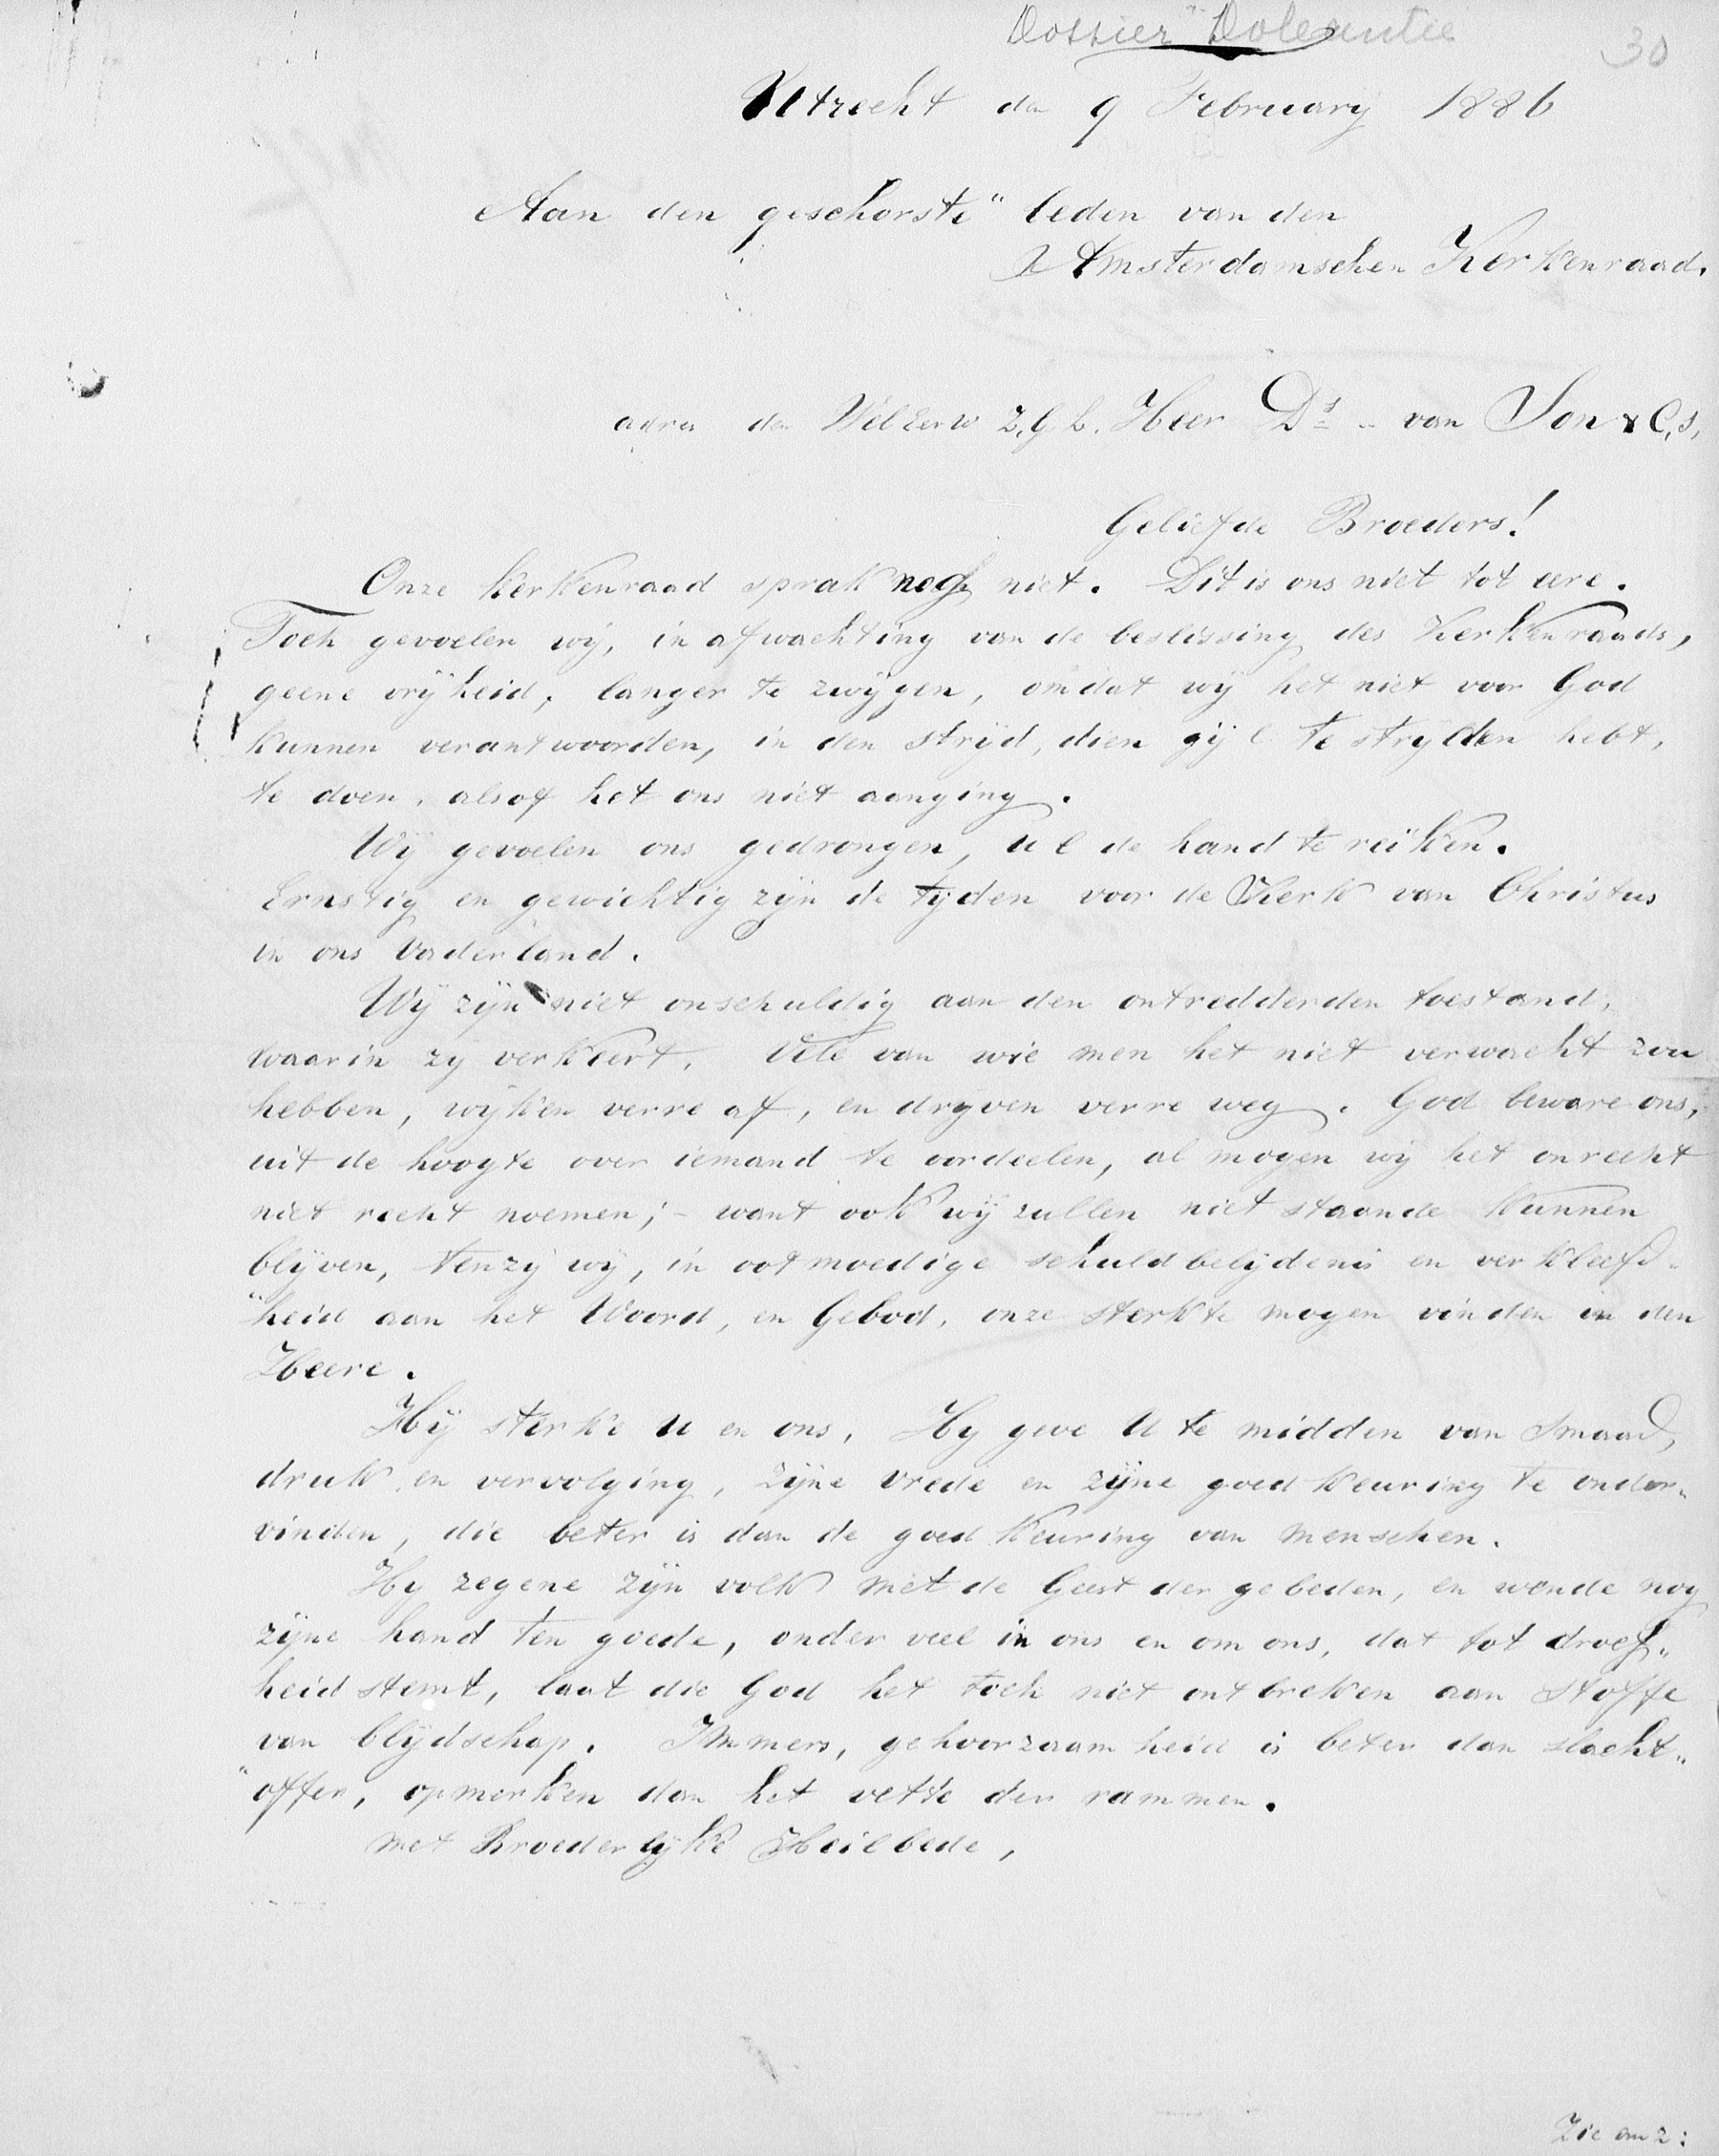 Dossier "Doleantie
30
Utrecht den 9 February 1886
Aan den geschorste" leden van den
Amsterdamschen Kerkenraad.
adres den WelEerw Z.G.L. Heer Ds .. van Son & C.s,
Geliefde Broeders!
Onze Kerkenraad sprak nog niet. Dit is ons niet tot eere.
Toch gevoelen wij, in afwachting van de beslissing des Kerkenraads,
geene vrijheid, langer te zwijgen, omdat wij het niet voor God
kunnen verantwoorden, in den strijd, dien gij l te stryden hebt,
te doen, alsof het ons niet aanging.
Wij gevoelen ons gedrongen, u l de hand te reiken.
Ernstig en gewichtig zijn de tyden voor de Kerk van Christus
in ons Vaderland.
Wij zijn niet onschuldig aan den ontredderden toestand,
waarin zy verkeert. Vele van wie men het niet verwacht zou
hebben, wyken verre af, en dryven verre weg. God beware ons,
uit de hoogte over iemand te oordeelen, al mogen wij het onrecht
niet recht noemen; - want ook wij zullen niet staande kunnen
blijven, tenzij wij, in ootmoedige schuldbelijdenis en verkleefd-
"heid aan het Woord, en Gebod, onze sterkte mogen vinden in den
Heere.
Hij sterke U en ons. Hy geve U te midden van Smaad,
druk en vervolging, zijne vrede en zijne goedkeuring te onder„
vinden, die beter is dan de goedkeuring van menschen.
Hy zegene zijn volk met de Geest der gebeden, en wende nog
zijne hand ten goede, onder veel in ons en om ons, dat tot droef„
heid stemt, laat die God het toch niet ontbreken aan stoffe
van blijdschap. Immers, gehoorzaamheid is beter dan slacht„
"offer, opmerken dan het vette der rammen.
met Broederlijke Heilbede,
Zie om z: